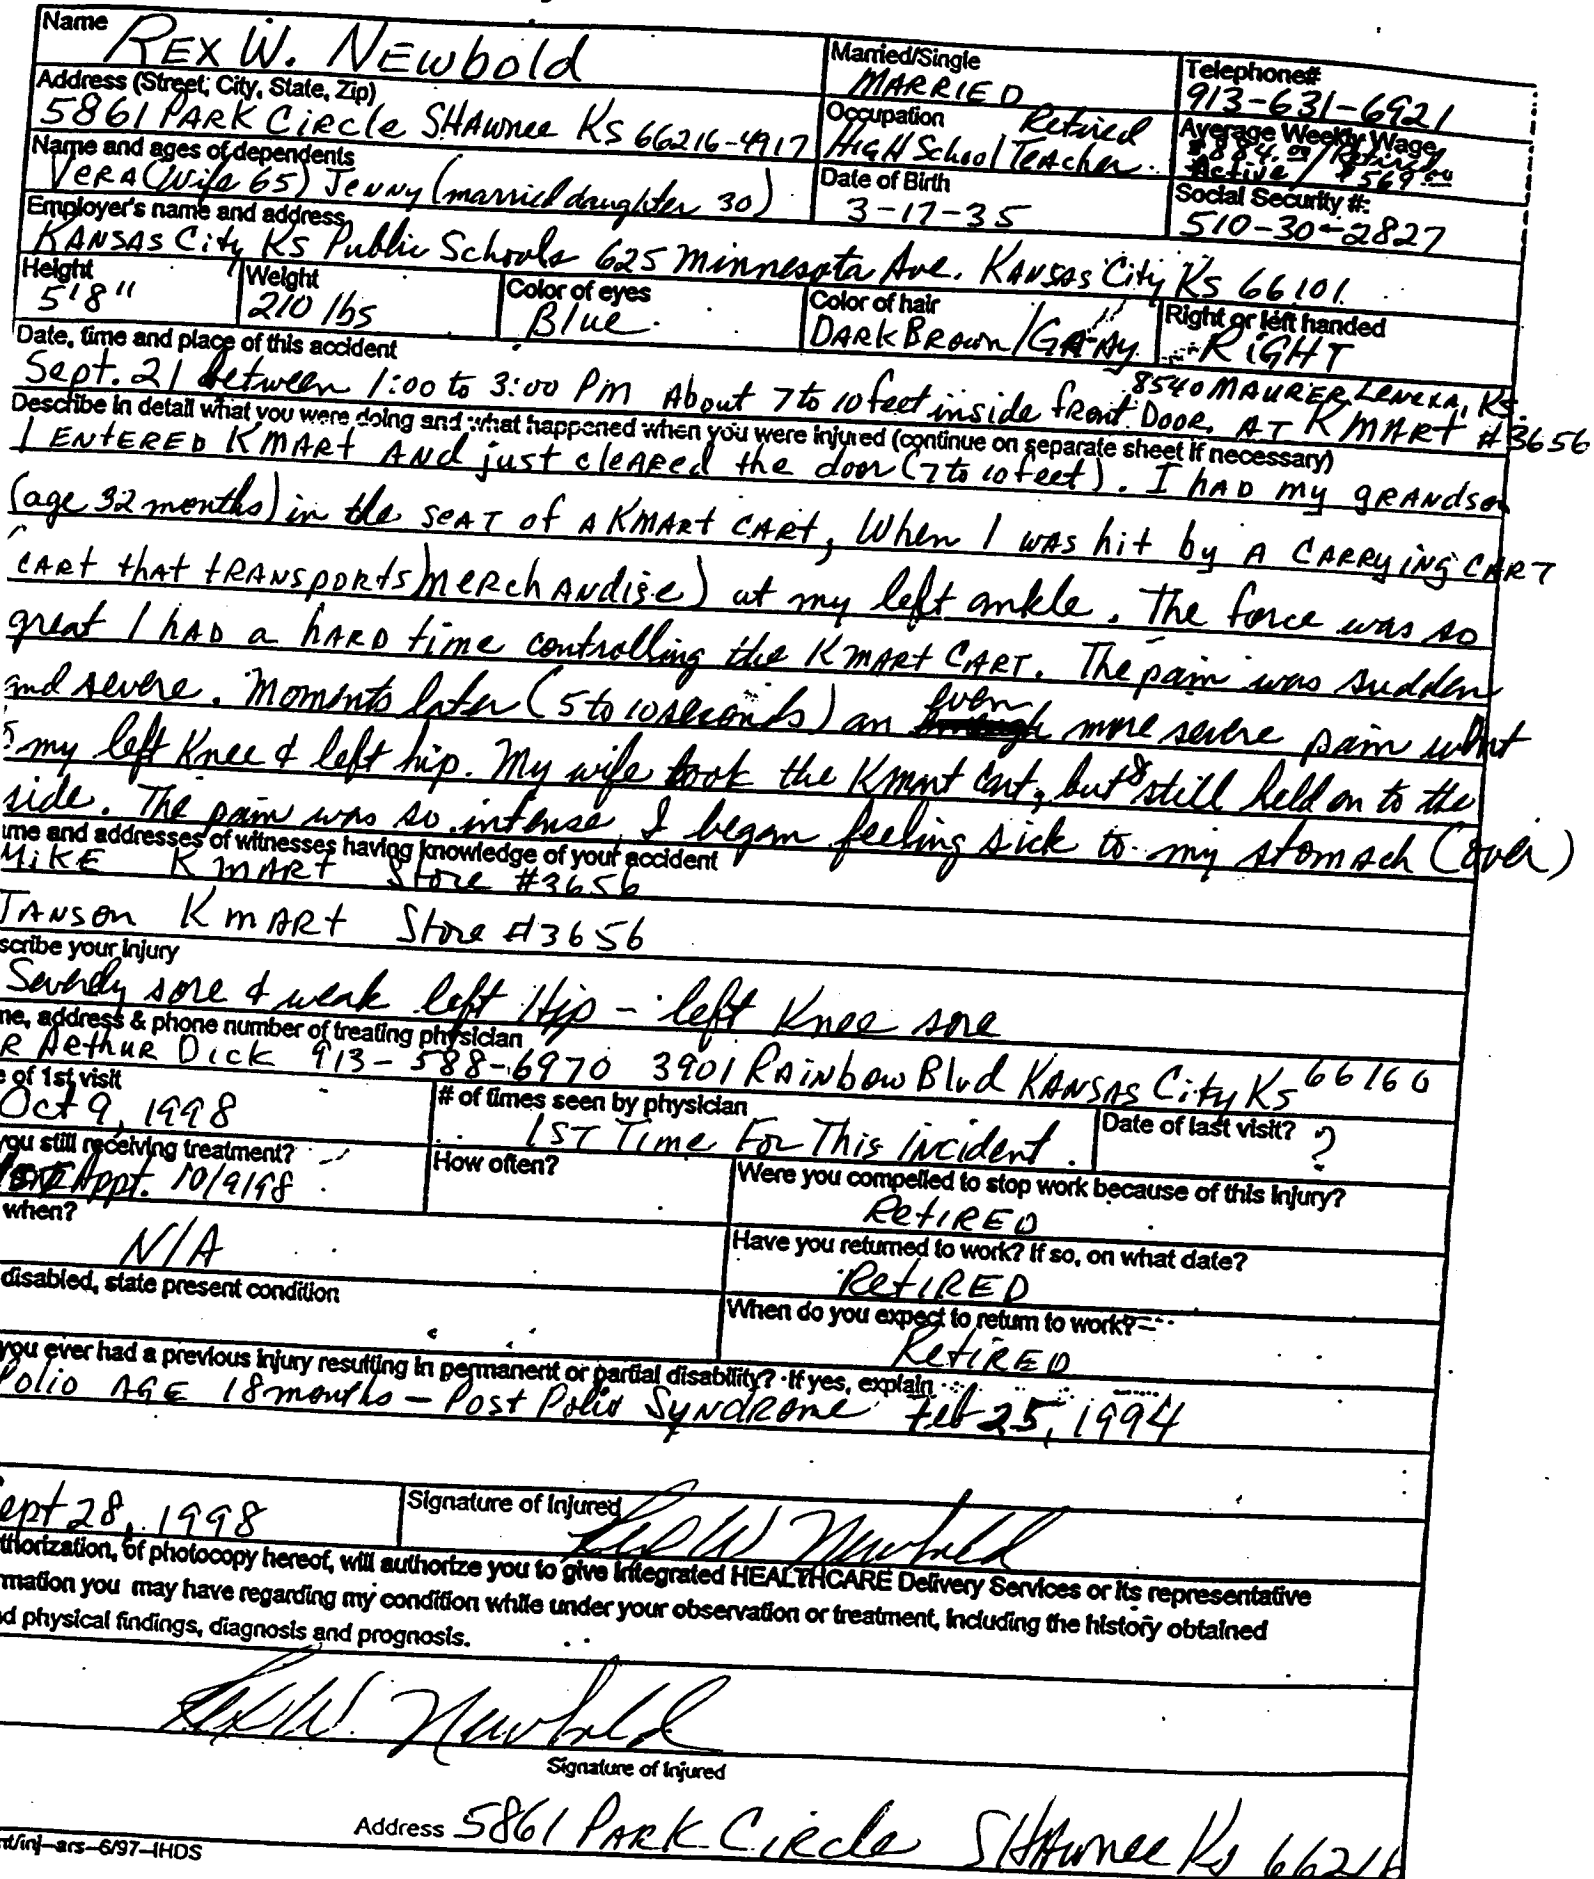 Name
REX W. NEwbold
Married/Single
MARRIED
Telephone#
913-631-6921
Address (Street, City, State, Zip)
5861 PARK CiRcle SHAwnee Ks 66216-4917
Occupation Retired
HiGH School TEAcher
Average Weekly Wage
$884.00 / Retired
Active / $569.00
Name and ages of dependents
VERA (Wife 65) JENNY (married daughter 30)
Date of Birth
3-17-35
Social Security #:
510-30-2827
Employer's name and address
KANSAS City Ks Public Schools 625 Minnesota Ave. KANSAS City Ks 66101
Height
5'8"
Weight
210 lbs
Color of eyes
Blue
Color of hair
DARK BROWN/GRAy
Right or left handed
RiGHT
Date, time and place of this accident
8540 MAURER LENEXA, KS.
Sept. 21 between 1:00 to 3:00 PM About 7 to 10 feet inside fRont DooR, AT K MARt #3656
Describe in detail what you were doing and what happened when you were injured (continue on separate sheet if necessary)
I ENtERED K MARt ANd just cleARed the door (7 to 10 feet). I hAD my gRANdson
(age 32 months) in the seAT of A KMARt CARt, When I wAs hit by A CARRyiNg CART
CARt thAt tRANspoRts MeRchANdise) at my left ankle. The force was so
great I hAD a hARD time controlling the K MARt CARt. The pain was sudden
and severe. Moments later (5 to 10 seconds) an even more severe pain went
my left Knee & left hip. My wife took the Kmart cart, but I still held on to the
side. The pain was so intense I began feeling sick to my stomach (over)
ime and addresses of witnesses having knowledge of your accident
MiKE K MARt Store #3656
JANSON K mARt Store #3656
scribe your injury
Severely sore & weak left Hip - left Knee sore
ne, address & phone number of treating physician
R ARthuR Dick 913-588-6970 3901 RAiNbow Blvd KANSAS City Ks 66160
e of 1st visit
Oct 9, 1998
# of times seen by physician
1ST Time For This incident
Date of last visit?
?
you still receiving treatment?
Appt. 10/9/98
How often?
Were you compelled to stop work because of this injury?
RetiRED
when?
N/A
Have you returned to work? If so, on what date?
RetiRED
disabled, state present condition
When do you expect to return to work?
RetiRED
you ever had a previous injury resulting in permanent or partial disability? If yes, explain
Polio AGE 18 months - Post Polio SyNdRome Feb 25, 1994
ept 28, 1998
Signature of Injured
Rex W Newbold
thorization, of photocopy hereof, will authorize you to give Integrated HEALTHCARE Delivery Services or its representative
rmation you may have regarding my condition while under your observation or treatment, including the history obtained
d physical findings, diagnosis and prognosis.
Rex W. Newbold
Signature of Injured
Address 5861 PARK CiRcle SHAwnee Ks 66216
nt/inj-ars-6/97-IHDS